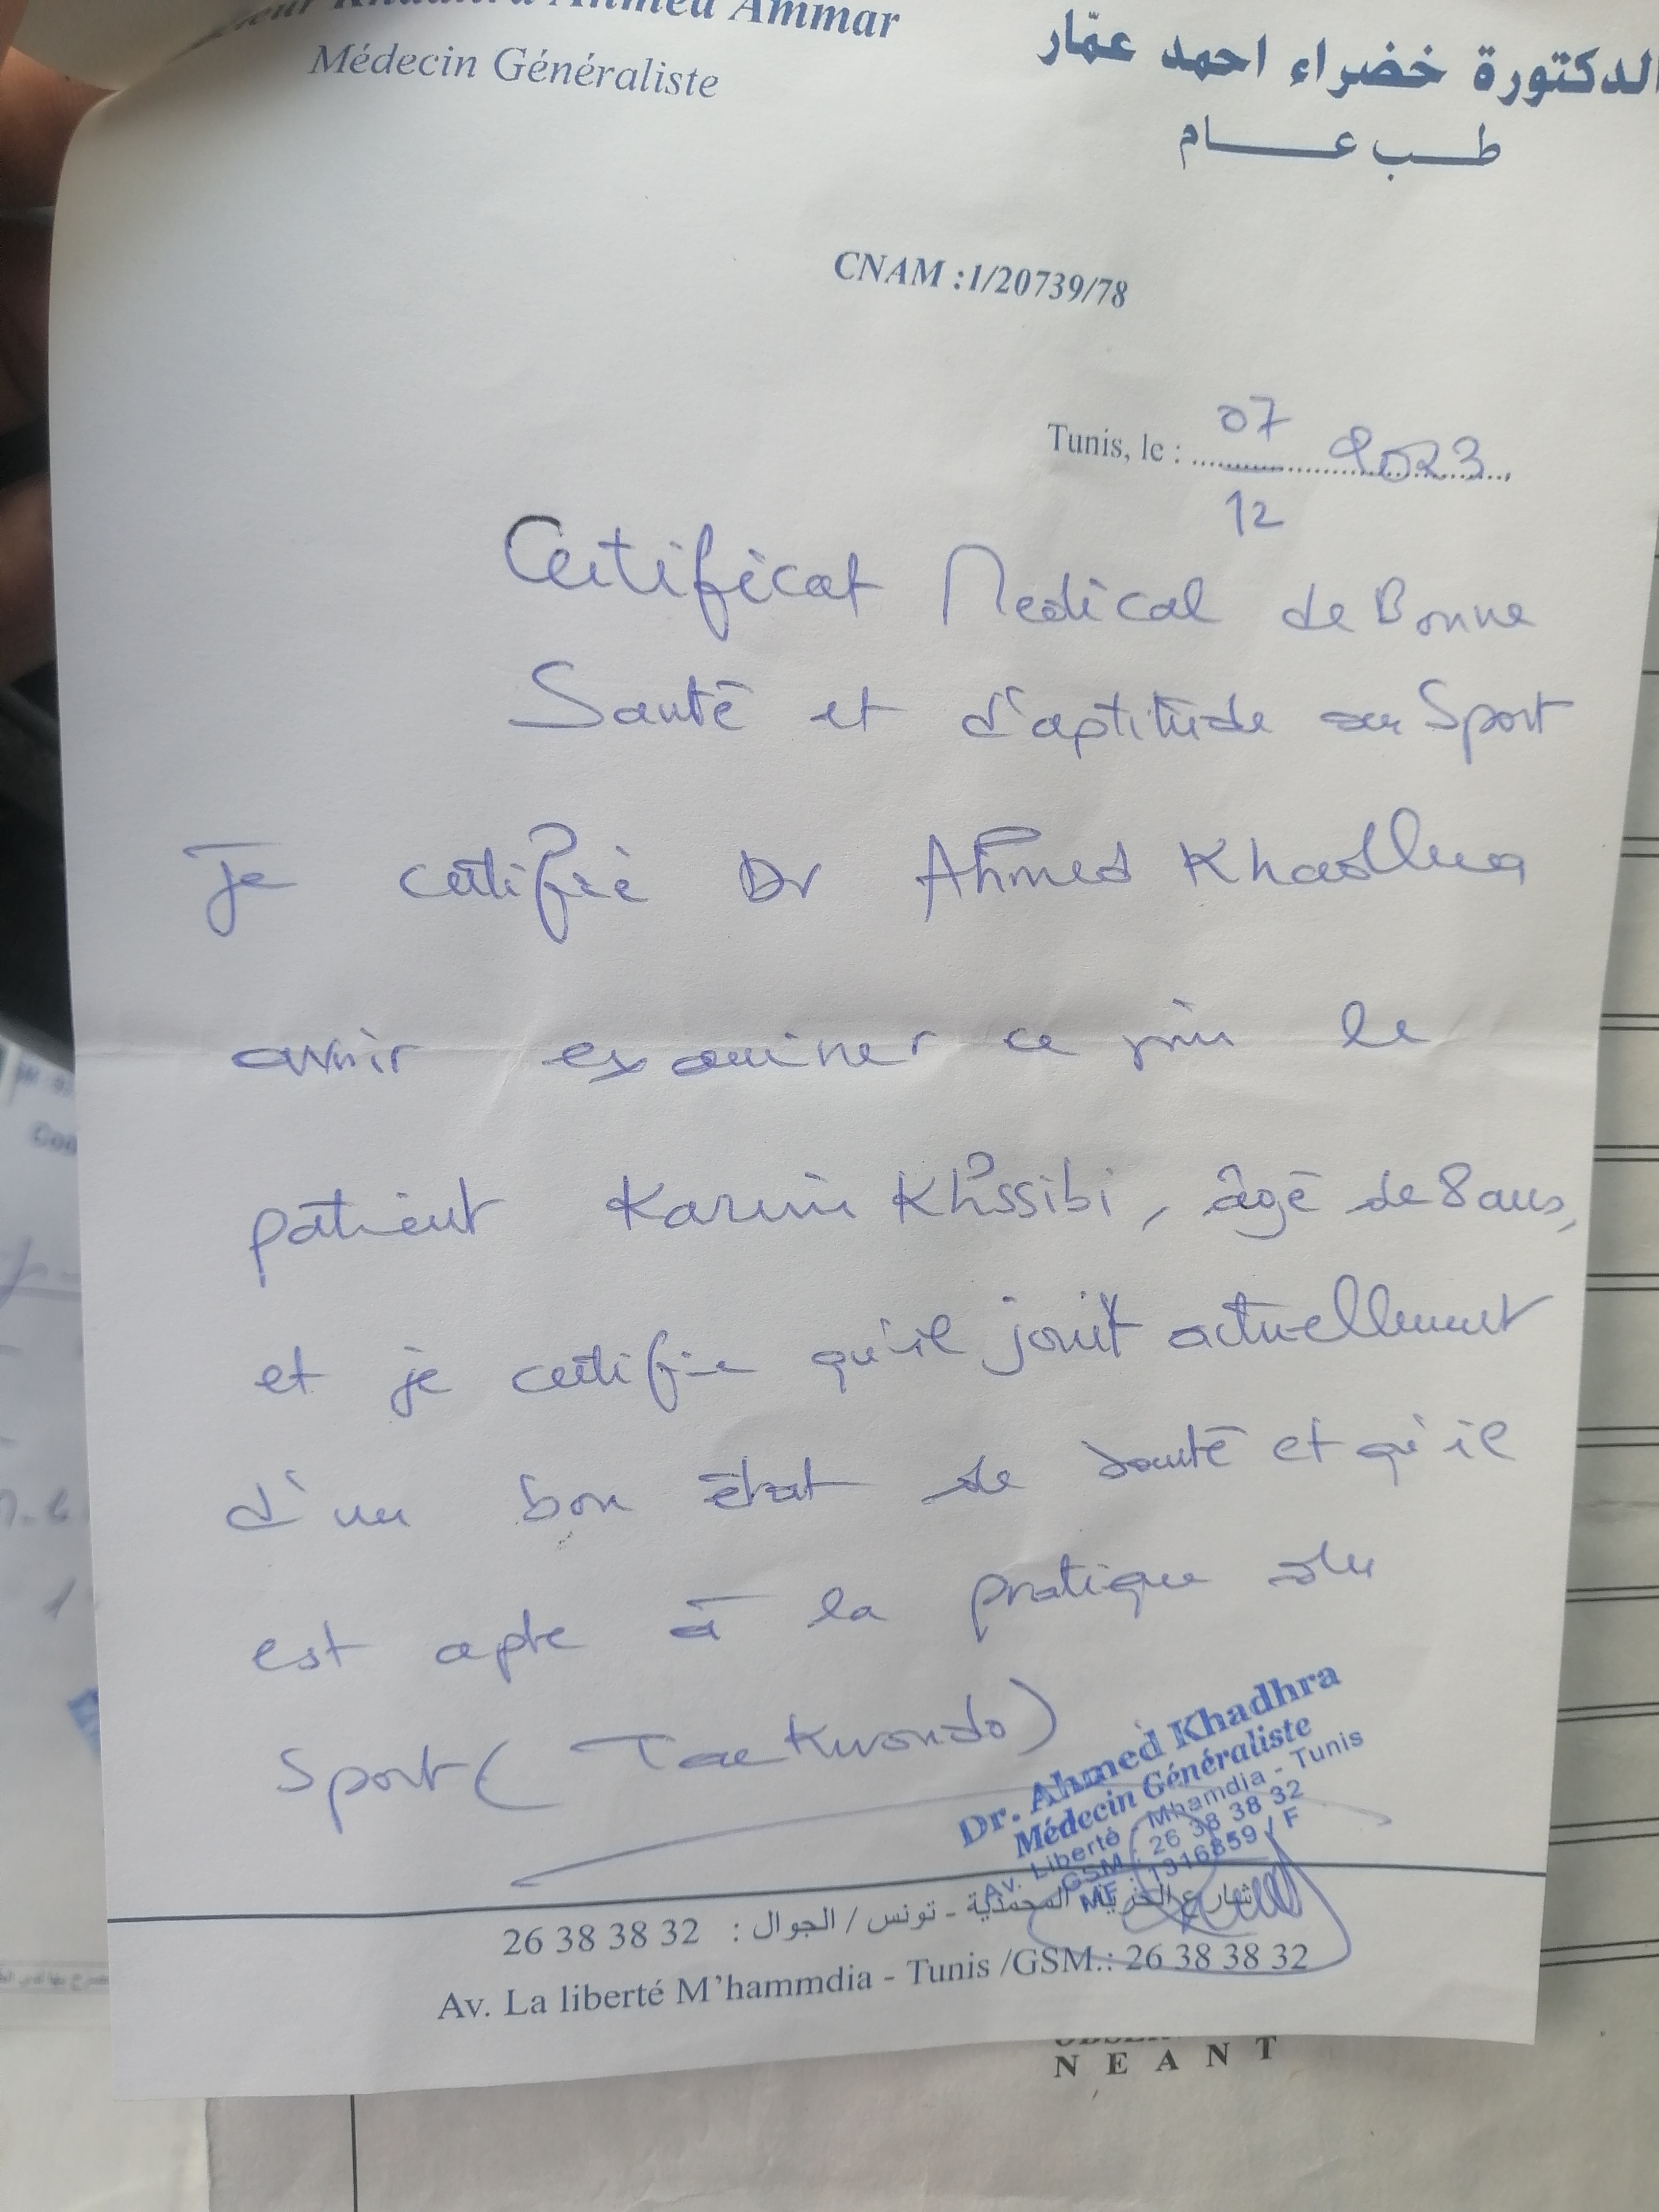 Khadhra Ahmed Ammar
Médecin Généraliste
الدكتورة خضراء احمد عمّار
طب عام
CNAM :1/20739/78
Tunis, le : 07/12 2023
Certificat Medical de Bonne
Santé et d'aptitude au Sport
Je certifie Dr Ahmed Khadhra
avoir examiner ce jour le
patient Karim Khssibi, âgé de 8 ans,
et je certifie qu'il jouit actuellement
d'un bon état de santé et qu'il
est apte à la pratique du
Sport (Taekwondo)
Dr. Ahmed Khadhra
Médecin Généraliste
Av. Liberté - Mhamdia - Tunis
GSM : 26 38 38 32
MF : 1316859 / F
شارع الحرية المحمدية - تونس / الجوال : 26 38 38 32
Av. La liberté M'hammdia - Tunis /GSM.: 26 38 38 32
N E A N T